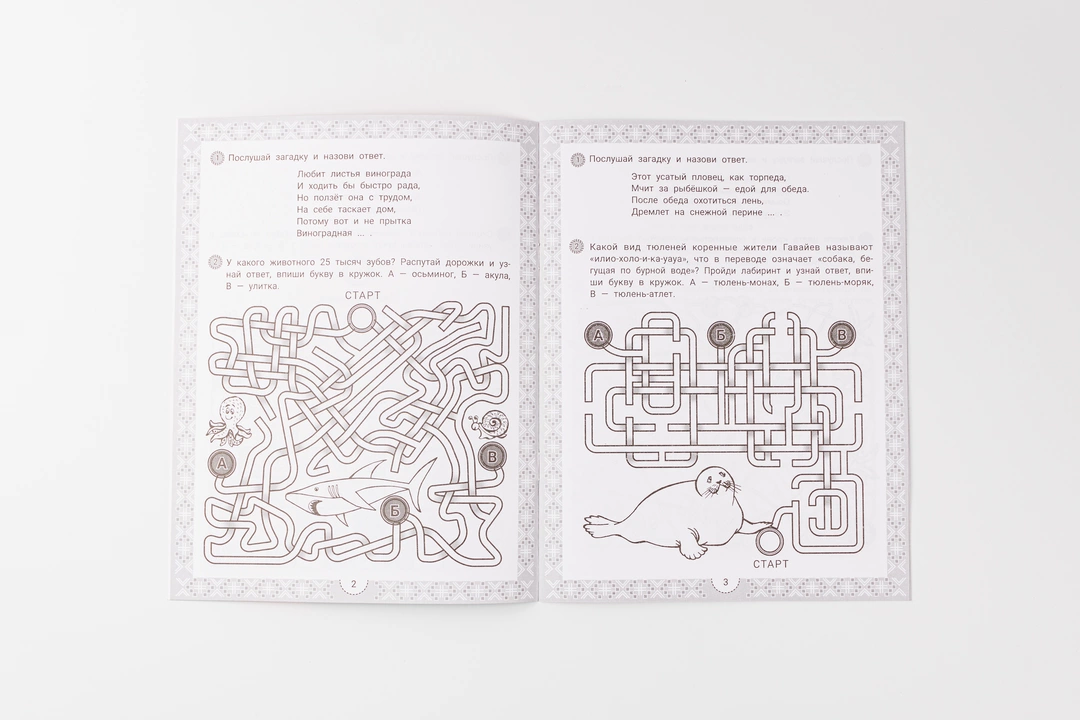 1 Послушай загадку и назови ответ.
Любит листья винограда
И ходить бы быстро рада,
Но ползёт она с трудом,
На себе таскает дом,
Потому вот и не прытка
Виноградная ... .
2 У какого животного 25 тысяч зубов? Распутай дорожки и уз-
най ответ, впиши букву в кружок. А — осьминог, Б — акула,
В — улитка.
СТАРТ
А
В
Б
2
1 Послушай загадку и назови ответ.
Этот усатый пловец, как торпеда,
Мчит за рыбёшкой — едой для обеда.
После обеда охотиться лень,
Дремлет на снежной перине ... .
2 Какой вид тюленей коренные жители Гавайев называют
«илио-холо-и-ка-уауа», что в переводе означает «собака, бе-
гущая по бурной воде»? Пройди лабиринт и узнай ответ, впи-
ши букву в кружок. А — тюлень-монах, Б — тюлень-моряк,
В — тюлень-атлет.
А Б В
СТАРТ
3